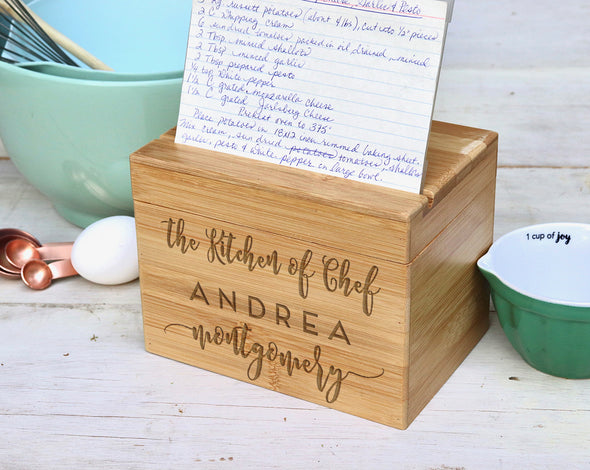 Garlic & Pesto
russett potatoes (about 4 lbs), cut into ½" pieces
2 C whipping cream
6 sundried tomatoes packed in oil, drained, minced
2 Tbsp minced shallots
2 Tbsp minced garlic
2 Tbsp prepared pesto
tsp white pepper
1½ C grated mozzarella cheese
1½ C grated Jarlsberg Cheese
Preheat oven to 375°
Place potatoes in 18x12 inch rimmed baking sheet.
Mix cream, sun dried potatoes tomatoes, shallots
garlic, pesto & white pepper in large bowl.
the Kitchen of Chef
ANDREA
montgomery
1 cup of joy